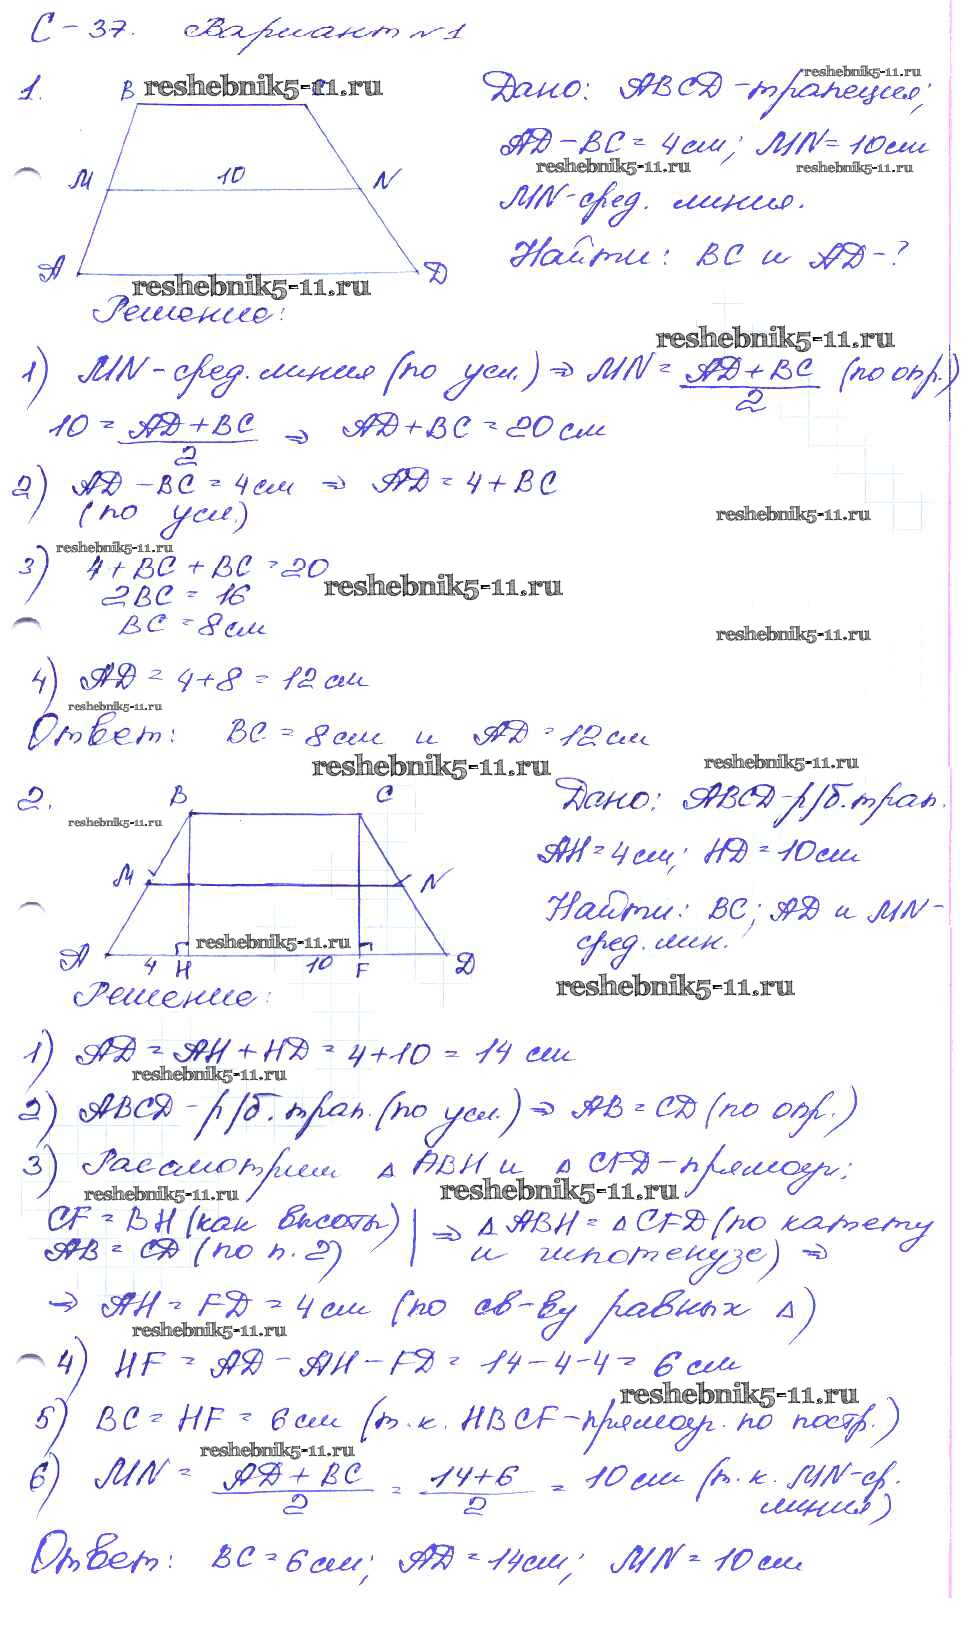 С-37. Вариант №1
1.
B reshebnik5-11.ru
reshebnik5-11.ru
Дано: ABCD - трапеция;
AD - BC = 4 см; MN = 10 см
reshebnik5-11.ru reshebnik5-11.ru
M 10 N
MN - сред. линия.
Найти: BC и AD - ?
A D
reshebnik5-11.ru
Решение:
reshebnik5-11.ru
1) MN - сред. линия (по усл.) ⇒ MN = (AD + BC)/2 (по опр.)
10 = (AD + BC)/2 ⇒ AD + BC = 20 см
2) AD - BC = 4 см ⇒ AD = 4 + BC
(по усл.)
reshebnik5-11.ru
reshebnik5-11.ru
3) 4 + BC + BC = 20
reshebnik5-11.ru
2BC = 16
BC = 8 см
reshebnik5-11.ru
4) AD = 4 + 8 = 12 см
reshebnik5-11.ru
Ответ: BC = 8 см и AD = 12 см
reshebnik5-11.ru reshebnik5-11.ru
2. B C
reshebnik5-11.ru
Дано: ABCD - р/б. трап.
AH = 4 см; HD = 10 см
M N
Найти: BC; AD и MN -
сред. лин.
reshebnik5-11.ru
A 4 H 10 F D
reshebnik5-11.ru
Решение:
1) AD = AH + HD = 4 + 10 = 14 см
reshebnik5-11.ru
2) ABCD - р/б. трап. (по усл.) ⇒ AB = CD (по опр.)
3) Рассмотрим Δ ABH и Δ CFD - прямоуг;
reshebnik5-11.ru reshebnik5-11.ru
CF = BH (как высоты) | ⇒ Δ ABH = Δ CFD (по катету
AB = CD (по п. 2) | и гипотенузе) ⇒
⇒ AH = FD = 4 см (по св-ву равных Δ)
reshebnik5-11.ru
4) HF = AD - AH - FD = 14 - 4 - 4 = 6 см
reshebnik5-11.ru
5) BC = HF = 6 см (т.к. HBCF - прямоуг. по постр.)
reshebnik5-11.ru
6) MN = (AD + BC)/2 = (14 + 6)/2 = 10 см (т.к. MN - ср.
линия)
Ответ: BC = 6 см; AD = 14 см; MN = 10 см